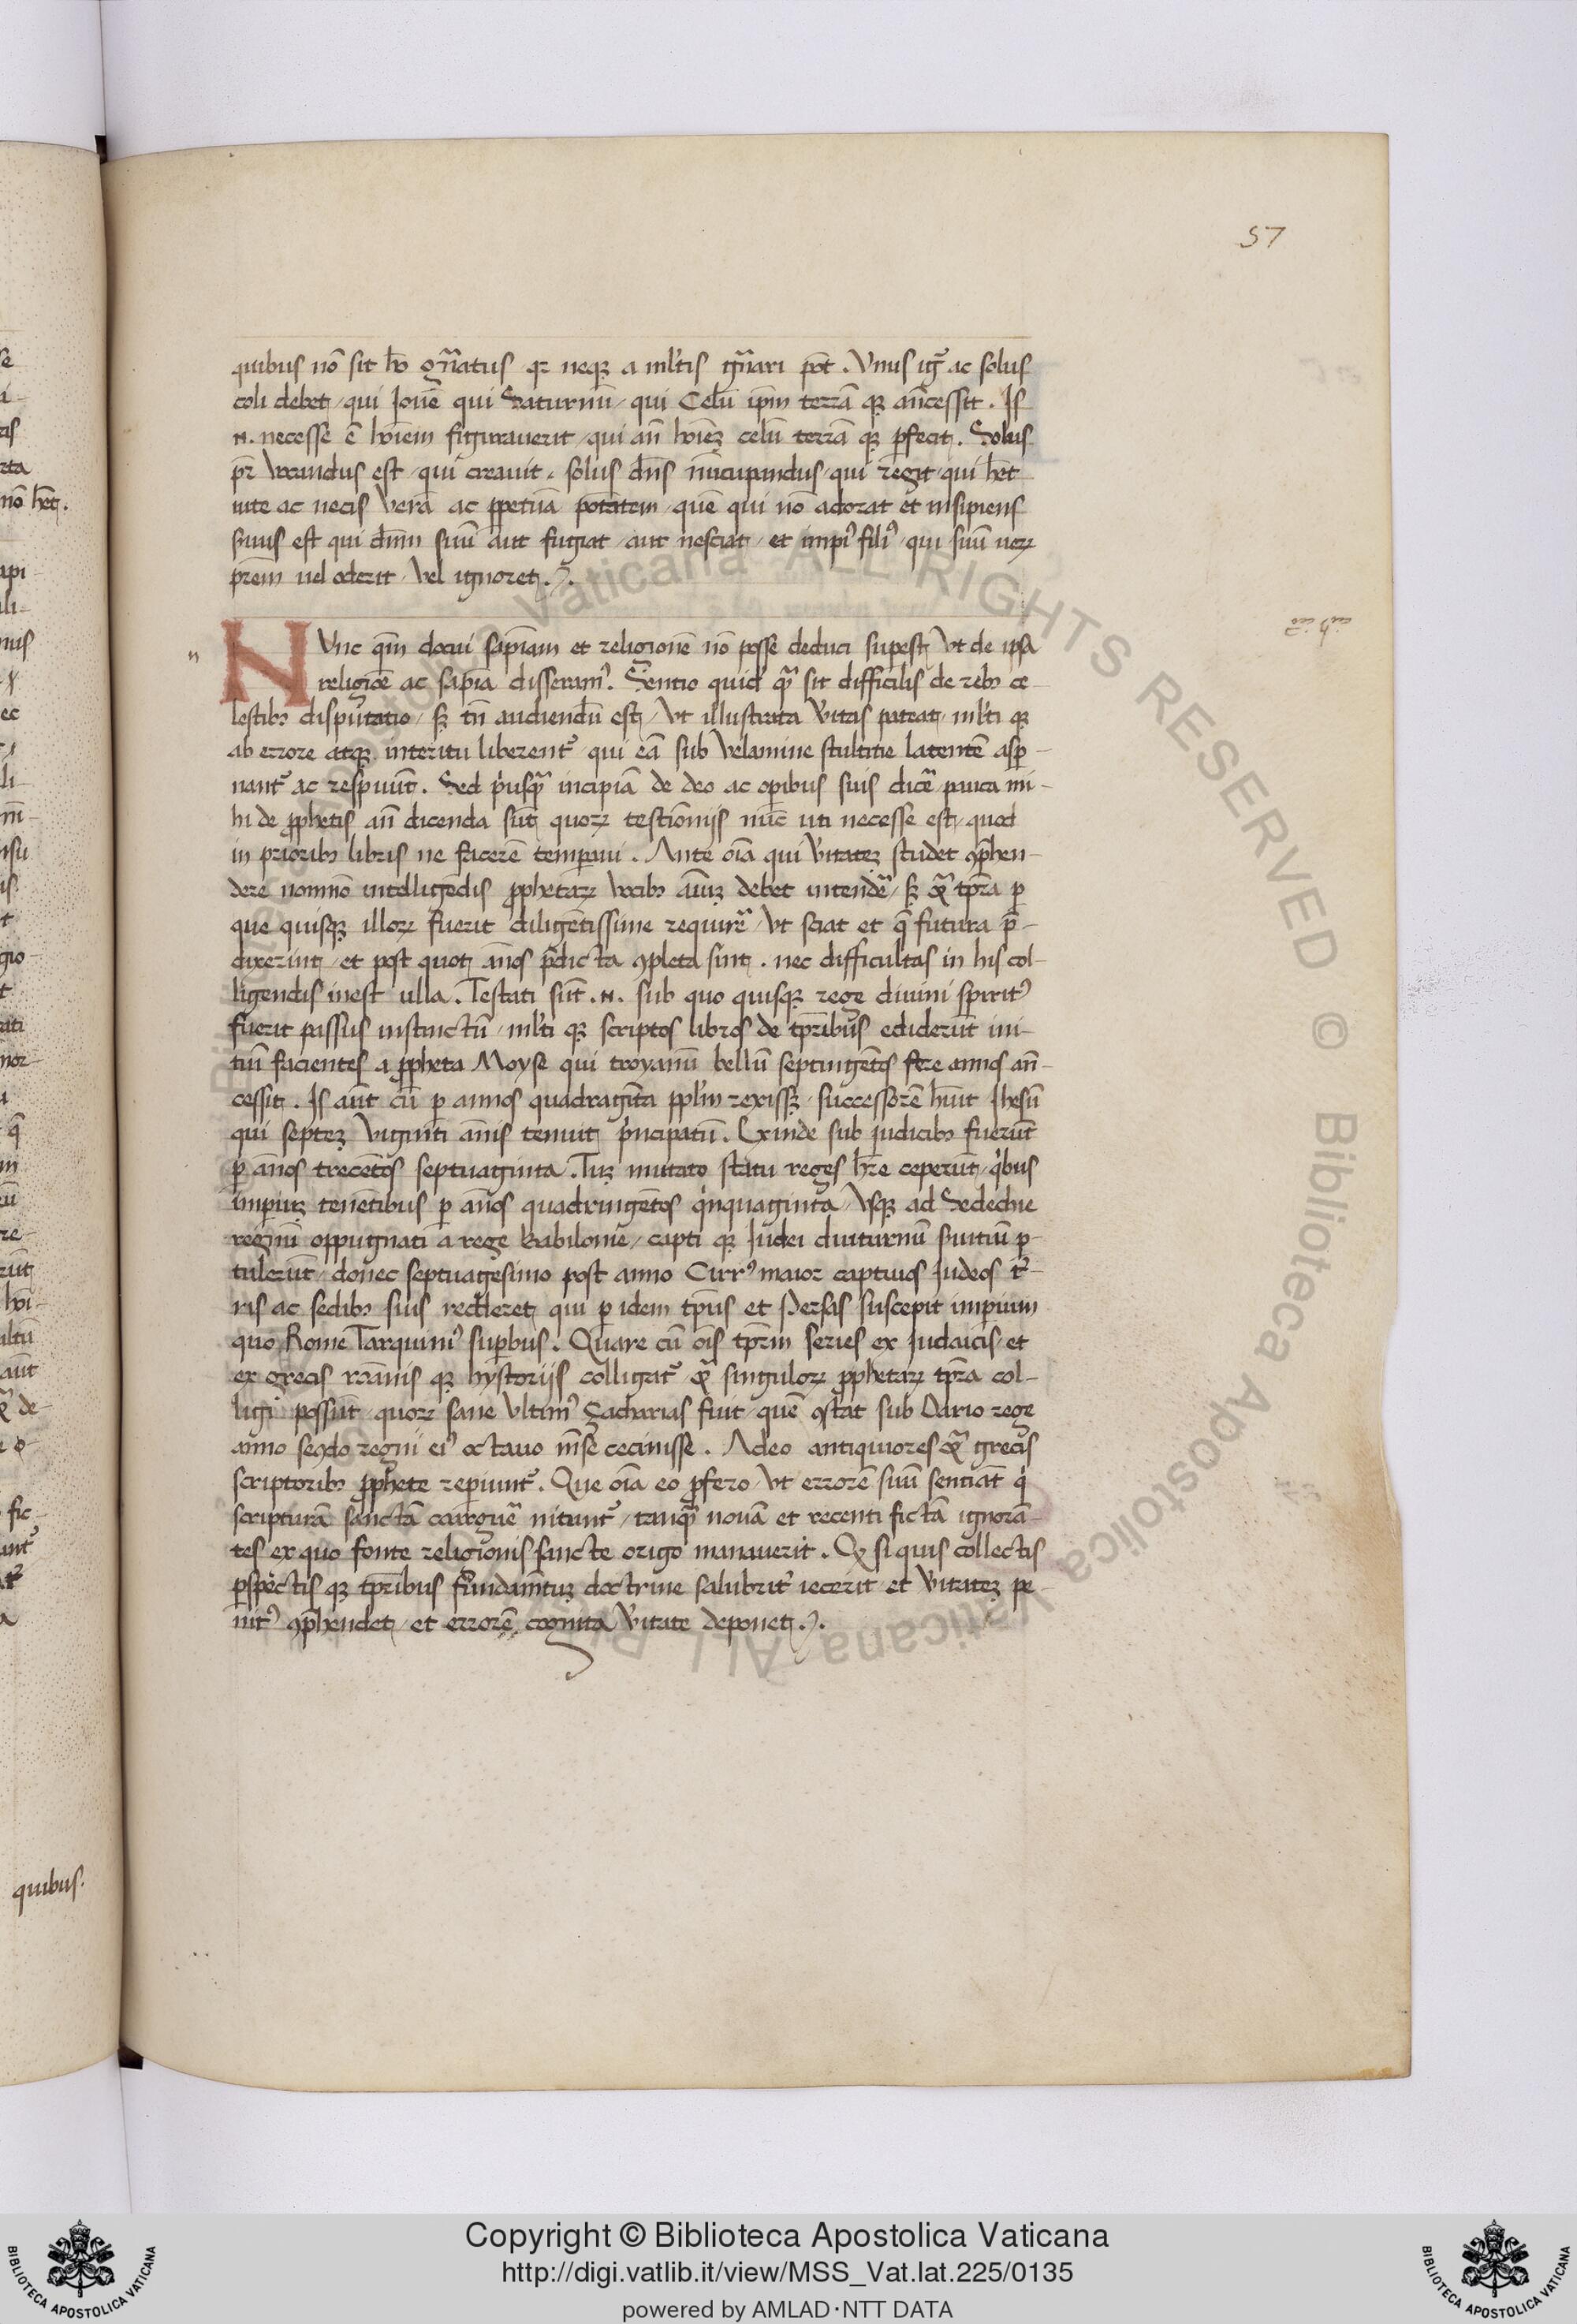 57
quibus nō sit hō gn̄atus qꝛ neqꝫ a ml'tis gn̄ari pōt . Vnus igr̄ ac solus
coli debet / qui Iouē qui Saturnū / qui Celū ip̄m terrā qꝫ an̄cessit . Is
.n. necesse ē hoīem figurauerit / qui an̄ hoīeꝫ celū terrā qꝫ ꝑfecit . Solus
pr̄ uocandus est / qui creauit / solus dn̄s nūcupandus / qui regit / qui hēt
uite ac necis verā ac ꝑpetuā potātem / quē qui nō adorat et insipiens
seruus est qui dn̄m suū aut fugiat / aut nesciat / et impi⁹ fili⁹ / qui suū ueꝝ
pr̄em uel oderit / vel ignoret .
n
NVnc qm̄ docui sapīam et religionē nō posse deduci supest / vt de ipsa
religiōe ac sapīa disseram⁹ . Sentio quid' qͣ sit difficilis de rebꝫ ce-
lestibꝫ disputatio / sꝫ tn̄ audiendū est / vt illustrata v̓itas pateat / ml'ti qꝫ
ab errore atqꝫ interitu liberent᷑ / qui eā sub velamine stultitie latentē aspͤ-
nant᷑ ac respuūt . Sed p̓usqͣ incipiā de deo ac oꝑibus suis dicē / pauca mi-
hi de ꝓphetis an̄ dicenda sūt / quoꝝ testimonijs nūc uti necesse est / quod
in prioribꝫ libris ne facerē temperaui . Ante oīa qui v̓itateꝫ studet ꝯp̄hen-
dere nonmō intelligēdis ꝓphetaꝝ uocibꝫ aīuꝫ debet intendē / sꝫ qͣ tp̄ra ꝑ
que quisqꝫ illoꝝ fuerit diligētissime requirē / vt sciat et q̄ futura p̄-
dixerint / et post quot an̄os p̄dicta ꝯpleta sint . nec difficultas in his col-
ligendis inest ulla . Testati sūt .n. sub quo quisqꝫ rege diuini spirit⁹
fuerit passus instinctū / ml'ti qꝫ scriptos libros de tp̄ribus ediderūt ini-
tiū facientes a ꝓpheta Moyse qui troyanū bellū septingētos fere annos an̄-
cessit . Is aūt cū ꝑ annos quadragīta ppl'm rexissꝫ / successorē hūit Ihesū
qui septeꝫ viginti an̄is tenuit p̓ncipatū . Exinde sub iudicibꝫ fuerūt
ꝑ an̄os trecētos septuaginta . Tuꝫ mutato statu reges hr̄e ceperūt / q̓bus
imꝑiuꝫ tenētibus ꝑ an̄os quadringētos q̓nquaginta / vsqꝫ ad Sedechie
regnū oppugnati a rege Babilonie / capti qꝫ Iudei diuturnū suitiū ꝑ-
tulerūt / donec septuagesimo post anno Cirr⁹ maior captiuos Iudeos t̓-
ris ac sedibꝫ suis redderet / qui ꝑ idem tp̄us et Persas suscepit imꝑium
quo Rome Tarquini⁹ suꝑbus . Quare cū oīs tp̄rm series ex Iudaicis / et
ex grecis romanis qꝫ hystorijs colligat᷑ / qͣ singuloꝝ ꝓphetaꝝ tp̄ra col-
ligi possūt / quoꝝ sane vltim⁹ Zacharias fuit / quē ꝯstat sub Dario rege
anno secūdo regni ei⁹ octauo mēse cecinisse . Adeo antiquiores qͣ grecis
scriptoribꝫ ꝓphete reꝑiunt᷑ . Que oīa eo ꝓfero / vt errorē suū sentiāt q̓
scripturā sanctā coarguē nitunt᷑ / tanqͣ nouā et recenti fictā ignorā-
tes ex quo fonte religionis sancte origo manauerit . Qꝫ si quis collectis
ꝑspectis qꝫ tp̄ribus fūndamētuꝫ doctrine salubrit᷑ iecerit et v̓itateꝫ pe-
nit⁹ ꝯp̄hendet / et errorē cognita v̓itate deponet .
quibus.
Copyright © Biblioteca Apostolica Vaticana
http://digi.vatlib.it/view/MSS_Vat.lat.225/0135
powered by AMLAD·NTT DATA
BIBLIOTECA APOSTOLICA VATICANA
BIBLIOTECA APOSTOLICA VATICANA